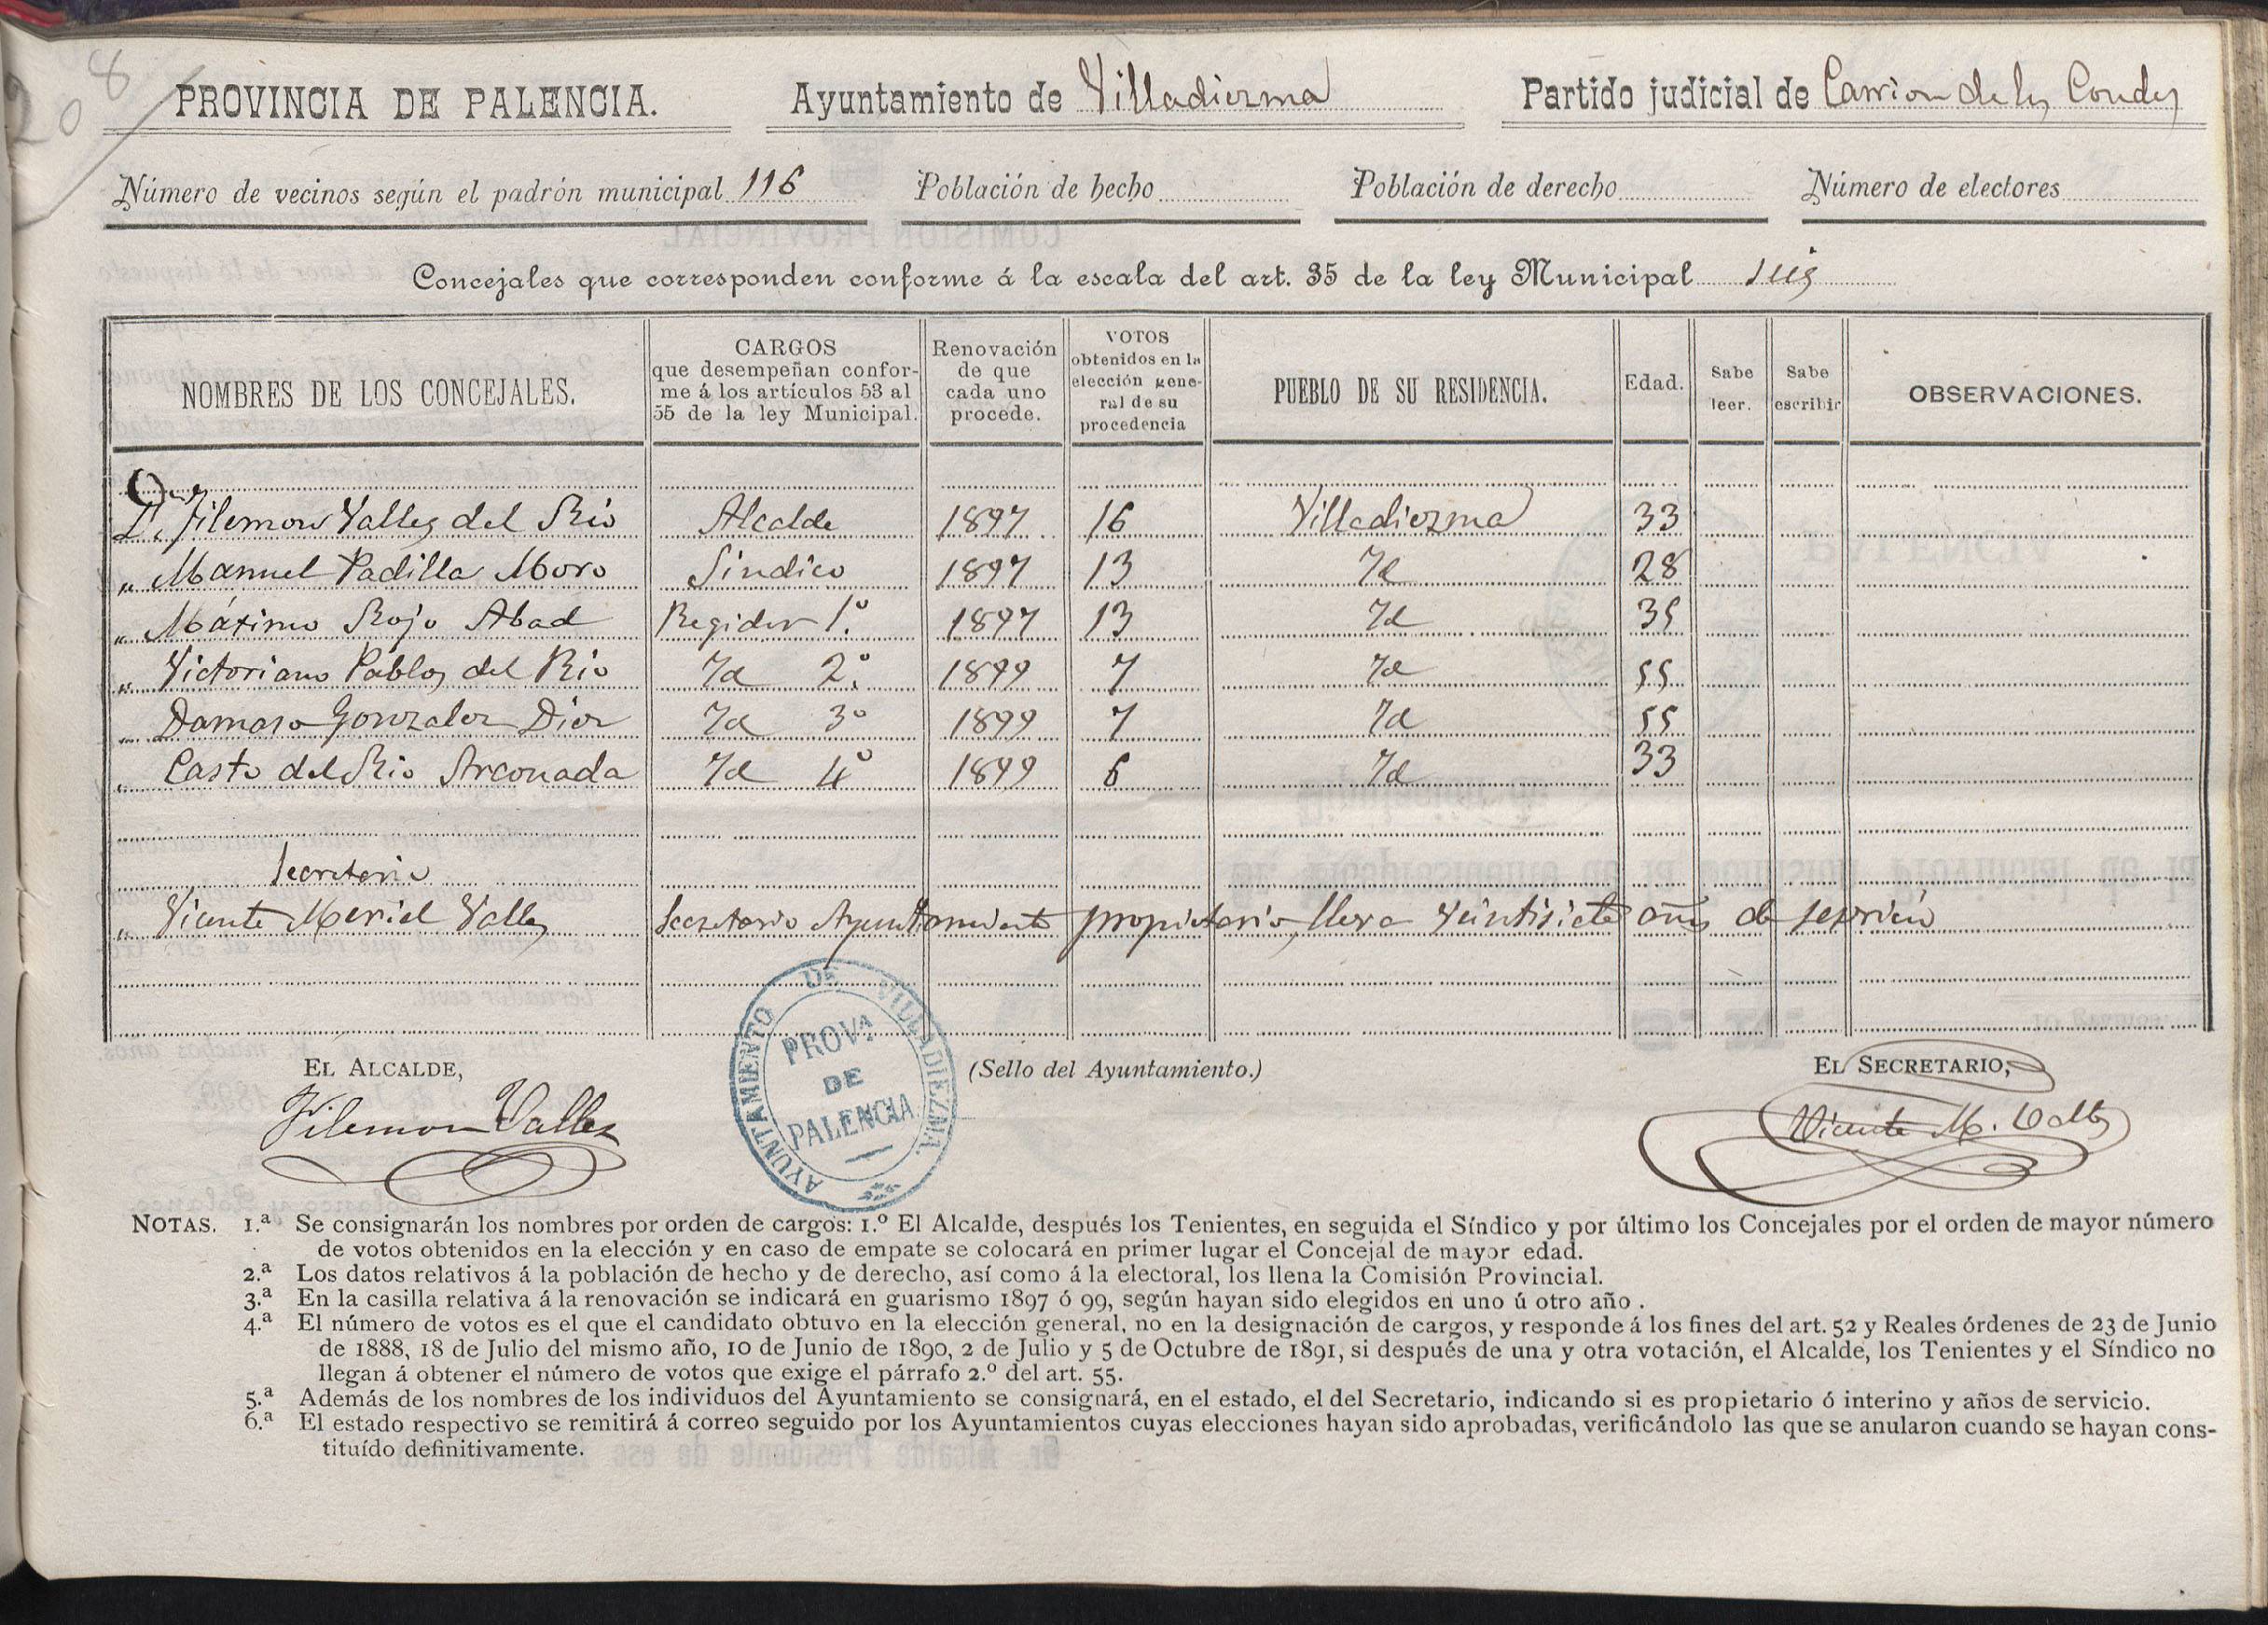 208
PROVINCIA DE PALENCIA. Ayuntamiento de Villadiezma Partido judicial de Carrion de los Condes
Número de vecinos según el padrón municipal 116 Población de hecho Población de derecho Número de electores
Concejales que corresponden conforme á la escala del art. 35 de la ley Municipal seis
NOMBRES DE LOS CONCEJALES. CARGOS que desempeñan confor-me á los artículos 53 al 55 de la ley Municipal. Renovación de que cada uno procede. VOTOS obtenidos en la elección gene-ral de su procedencia PUEBLO DE SU RESIDENCIA. Edad. Sabe leer. Sabe escribir OBSERVACIONES.
D. Filemon Valles del Rio Alcalde 1897 16 Villadiezma 33
" Manuel Padilla Moro Sindico 1897 13 Id 28
" Máximo Rojo Abad Regidor 1.º 1897 13 Id 35
" Victoriano Pablos del Rio Id 2.º 1899 7 Id 55
" Damaso Gonzalez Diez Id 3º 1899 7 Id 55
" Casto del Rio Arconada Id 4º 1899 6 Id 33
Secretario
" Vicente Meriel Valles Secretario Ayuntamiento propietario, lleva veintisiete años de servicio
EL ALCALDE, (Sello del Ayuntamiento.) EL SECRETARIO,
Filemon Valles
Vicente M. Valles
AYUNTAMIENTO DE VILLADIEZMA
PROVA
DE
PALENCIA
NOTAS. 1.ª Se consignarán los nombres por orden de cargos: 1.º El Alcalde, después los Tenientes, en seguida el Síndico y por último los Concejales por el orden de mayor número
de votos obtenidos en la elección y en caso de empate se colocará en primer lugar el Concejal de mayor edad.
2.ª Los datos relativos á la población de hecho y de derecho, así como á la electoral, los llena la Comisión Provincial.
3.ª En la casilla relativa á la renovación se indicará en guarismo 1897 ó 99, según hayan sido elegidos en uno ú otro año .
4.ª El número de votos es el que el candidato obtuvo en la elección general, no en la designación de cargos, y responde á los fines del art. 52 y Reales órdenes de 23 de Junio
de 1888, 18 de Julio del mismo año, 10 de Junio de 1890, 2 de Julio y 5 de Octubre de 1891, si después de una y otra votación, el Alcalde, los Tenientes y el Síndico no
llegan á obtener el número de votos que exige el párrafo 2.º del art. 55.
5.ª Además de los nombres de los individuos del Ayuntamiento se consignará, en el estado, el del Secretario, indicando si es propietario ó interino y años de servicio.
6.ª El estado respectivo se remitirá á correo seguido por los Ayuntamientos cuyas elecciones hayan sido aprobadas, verificándolo las que se anularon cuando se hayan cons-
tituído definitivamente.